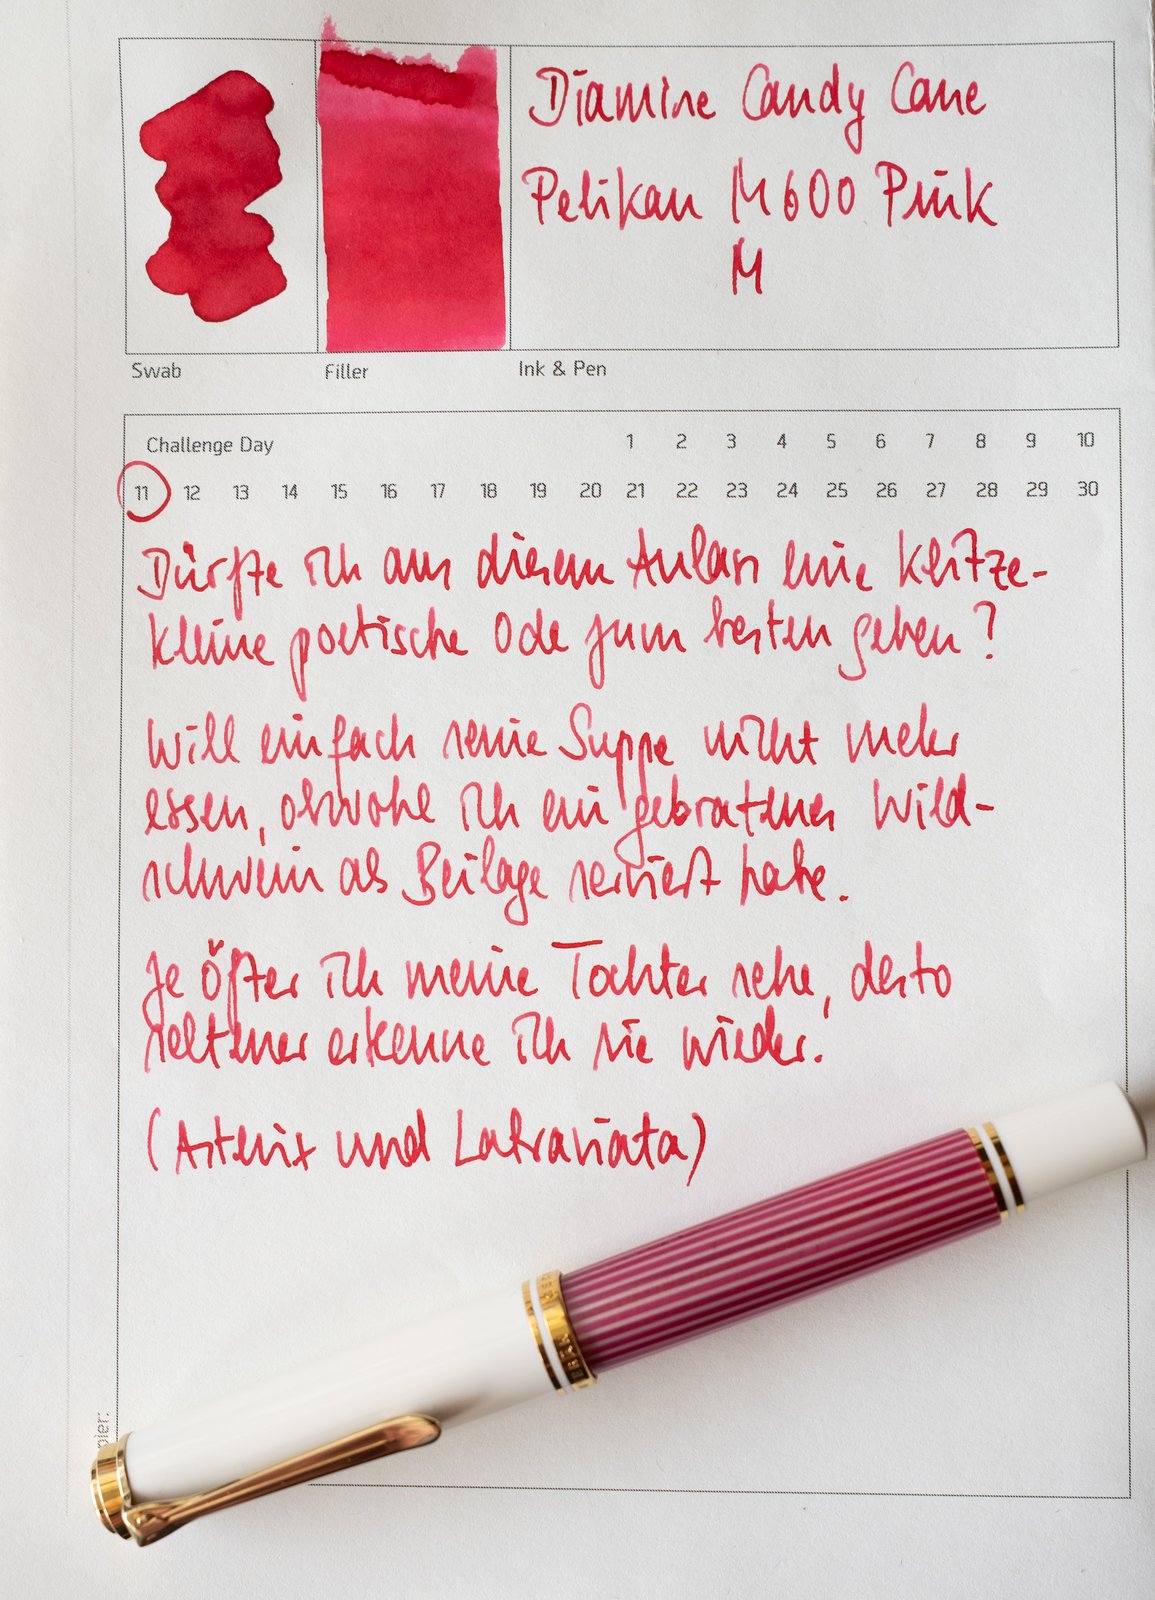 Diamine Candy Cane
Pelikan M600 Pink
M
Swab
Filler
Ink & Pen
Challenge Day 1 2 3 4 5 6 7 8 9 10
11 12 13 14 15 16 17 18 19 20 21 22 23 24 25 26 27 28 29 30
Dürfte ich aus diesem Anlass eine klitze-
kleine poetische Ode zum besten geben?
Will einfach seine Suppe nicht mehr
essen, obwohl ich ein gebratenes Wild-
schwein als Beilage serviert habe.
Je öfter ich meine Tochter sehe, desto
seltener erkenne ich sie wieder.
(Asterix und Latraviata)